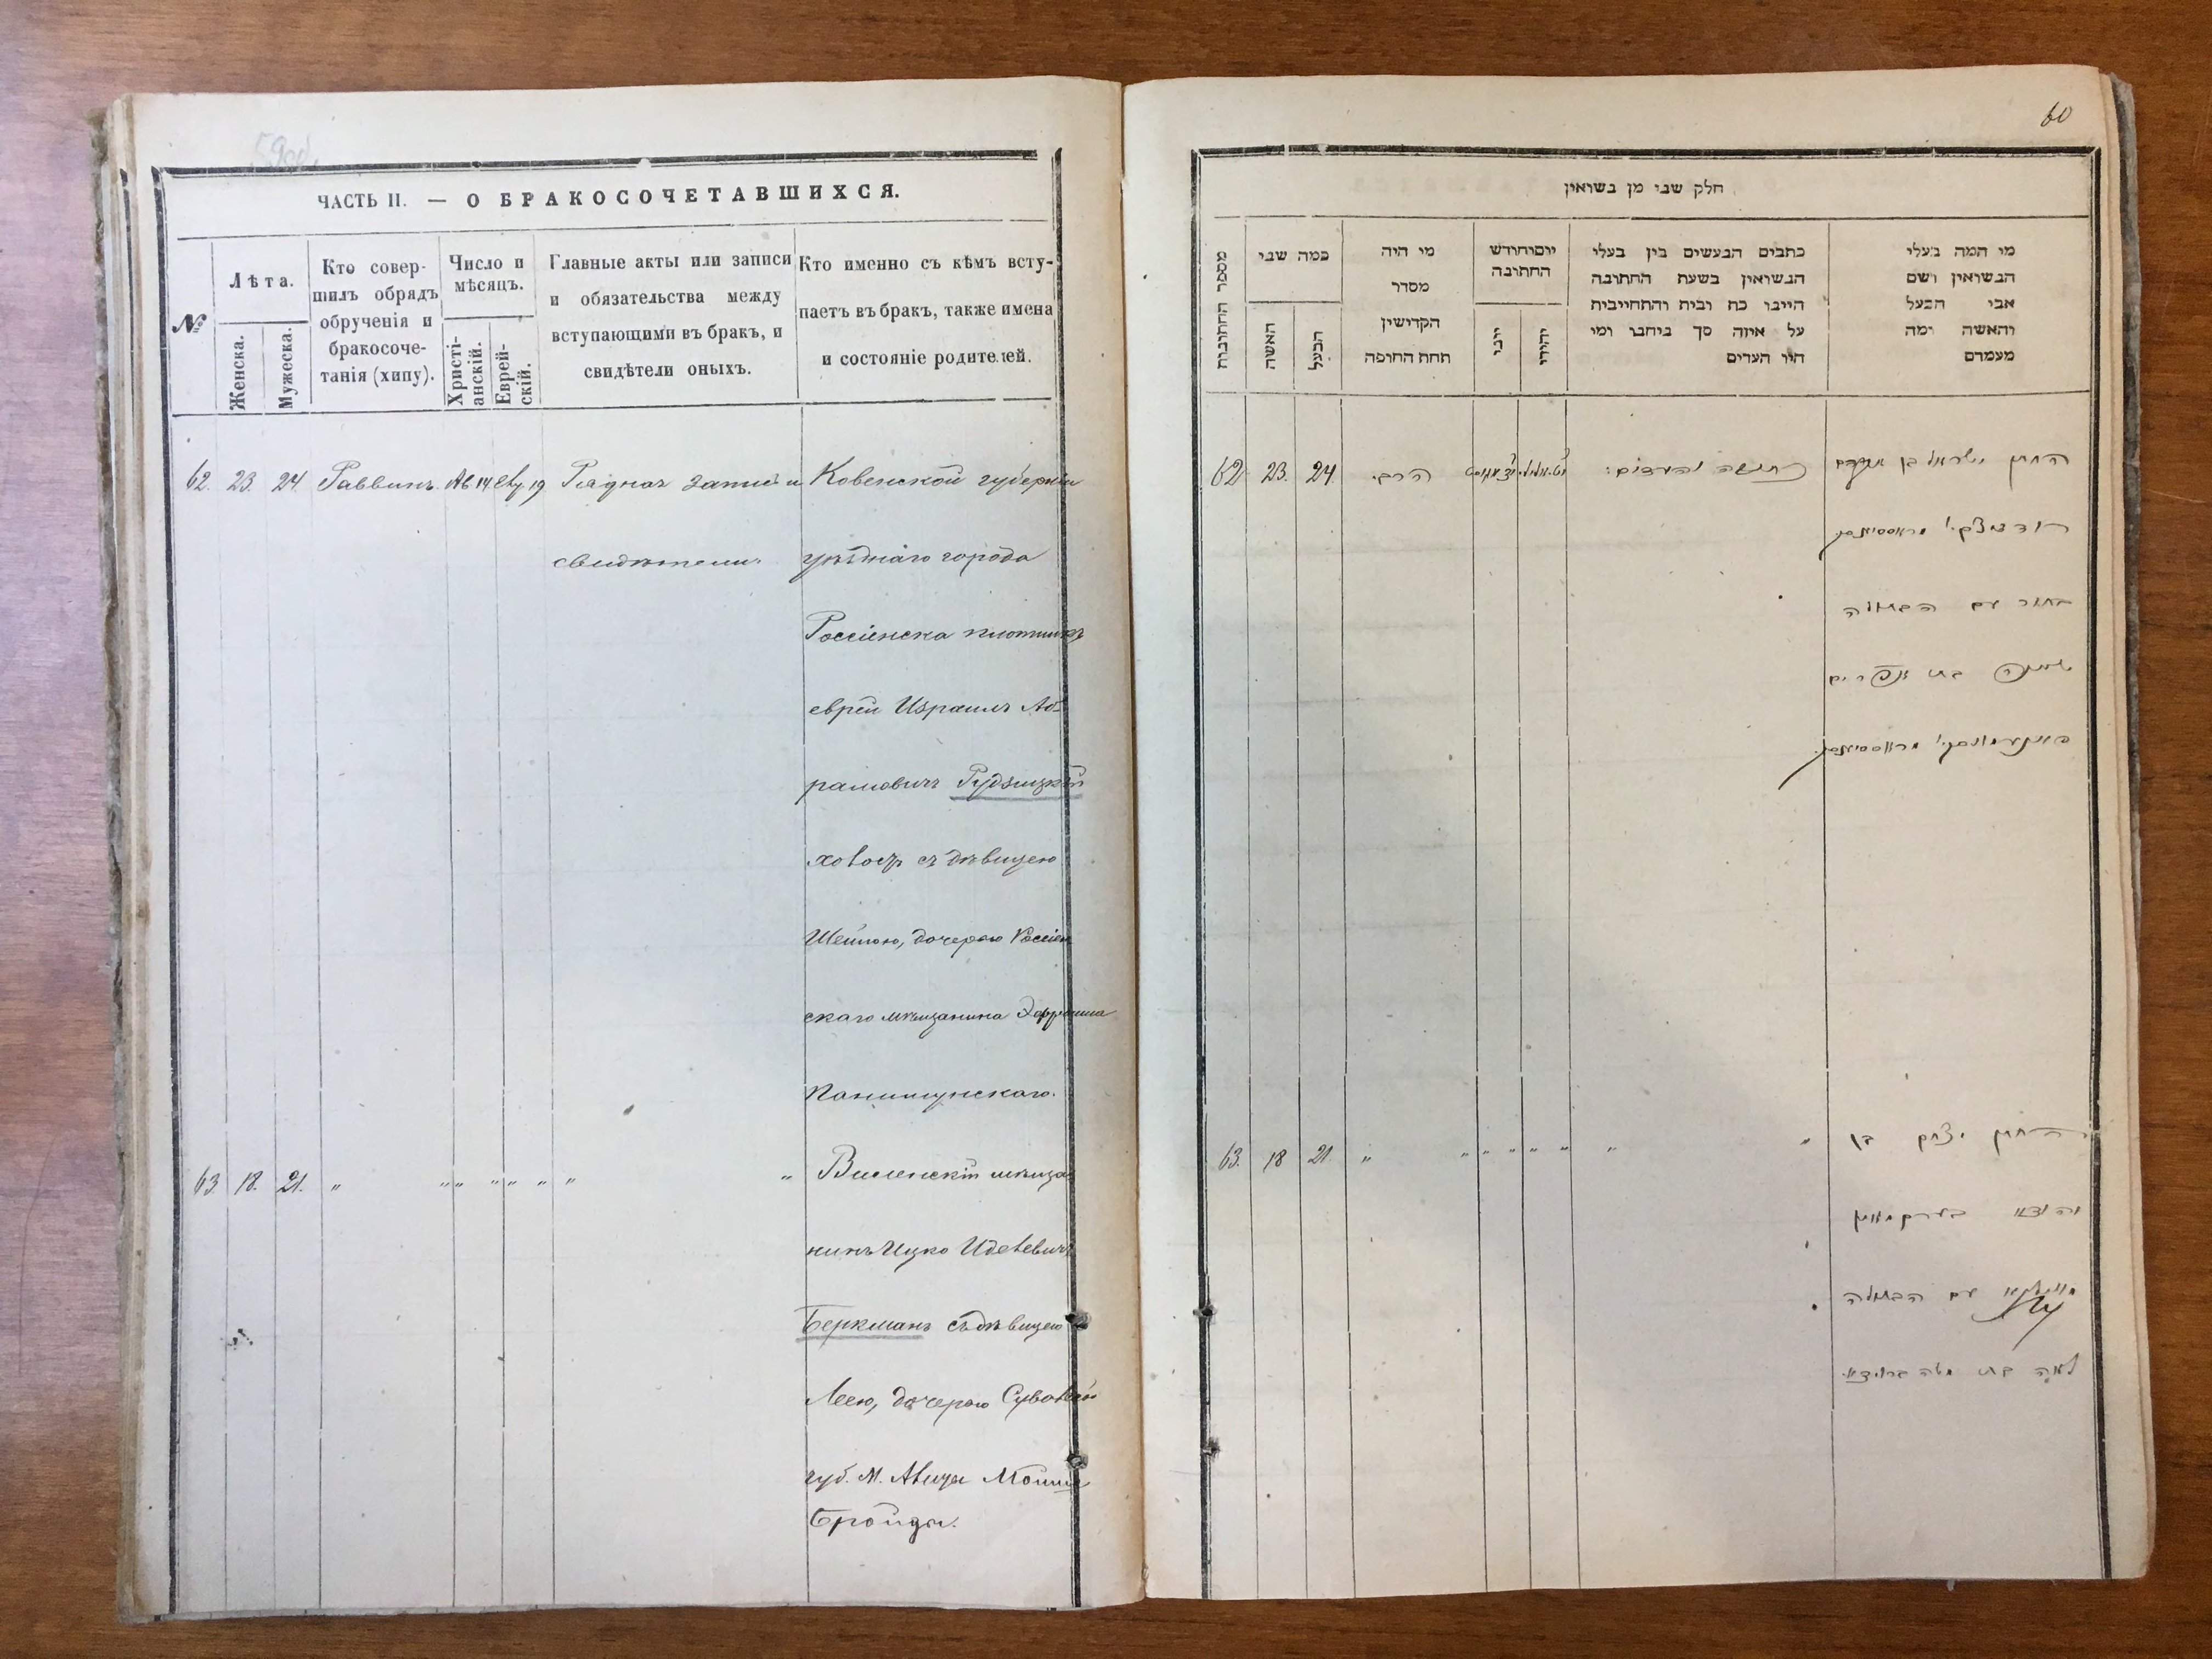 59об.
ЧАСТЬ II. — О БРАКОСОЧЕТАВШИХСЯ.
№
Лѣта.
Женска.
Мужеска.
Кто совер-
шилъ обрядъ
обрученія и
бракосоче-
танія (хипу).
Число и
мѣсяцъ.
Христі-
анскій.
Еврей-
скій.
Главные акты или записи
и обязательства между
вступающими въ бракъ, и
свидѣтели оныхъ.
Кто именно съ кѣмъ всту-
паетъ въ бракъ, также имена
и состояніе родителей.
62. 23. 24. Раввинъ. 14 19 Рядная запись и Ковенской губерніи
свидѣтели. уѣзднаго города
Россіенска плотникъ
еврей Израиль Аб-
рамовичъ Рудзицкій
холостъ съ дѣвицею
Шейною, дочерью Россіен
скаго мѣщанина Эфроима
63. 18. 21. „ „ „ „ „ „ „ „ Виленскій мѣща
нинъ Ицко
Беркманъ съ дѣвицею
Леею, дочерью Сувалкской
губ. М. Мойши
Бройды.
60
חלק שני מן נשואין
מספר החתונות
כמה שני
האשה
הבעל
מי היה
מסדר
הקדישין
תחת החופה
יום וחודש
החתונה
יוני
יהודי
כתבים הנעשים בין בעלי
הנשואין בשעת החתונה
היינו כח ובית והתחייבית
על איזה סך ביחבר ומי
היו העדים
מי המה בעלי
הנשואין ושם
אבי הבעל
והאשה ומה
מעמדם
62 23. 24. הרב. כתובה והעדים: החתן ישראל בן אברהם
בחור עם הבתולה
שיינה בת אפרים
63. 18 21. „ „ „ „ „ „ „ „ החתן יצחק בן
בערקמאן
עם הבתולה
לאה בת משה ברוידא